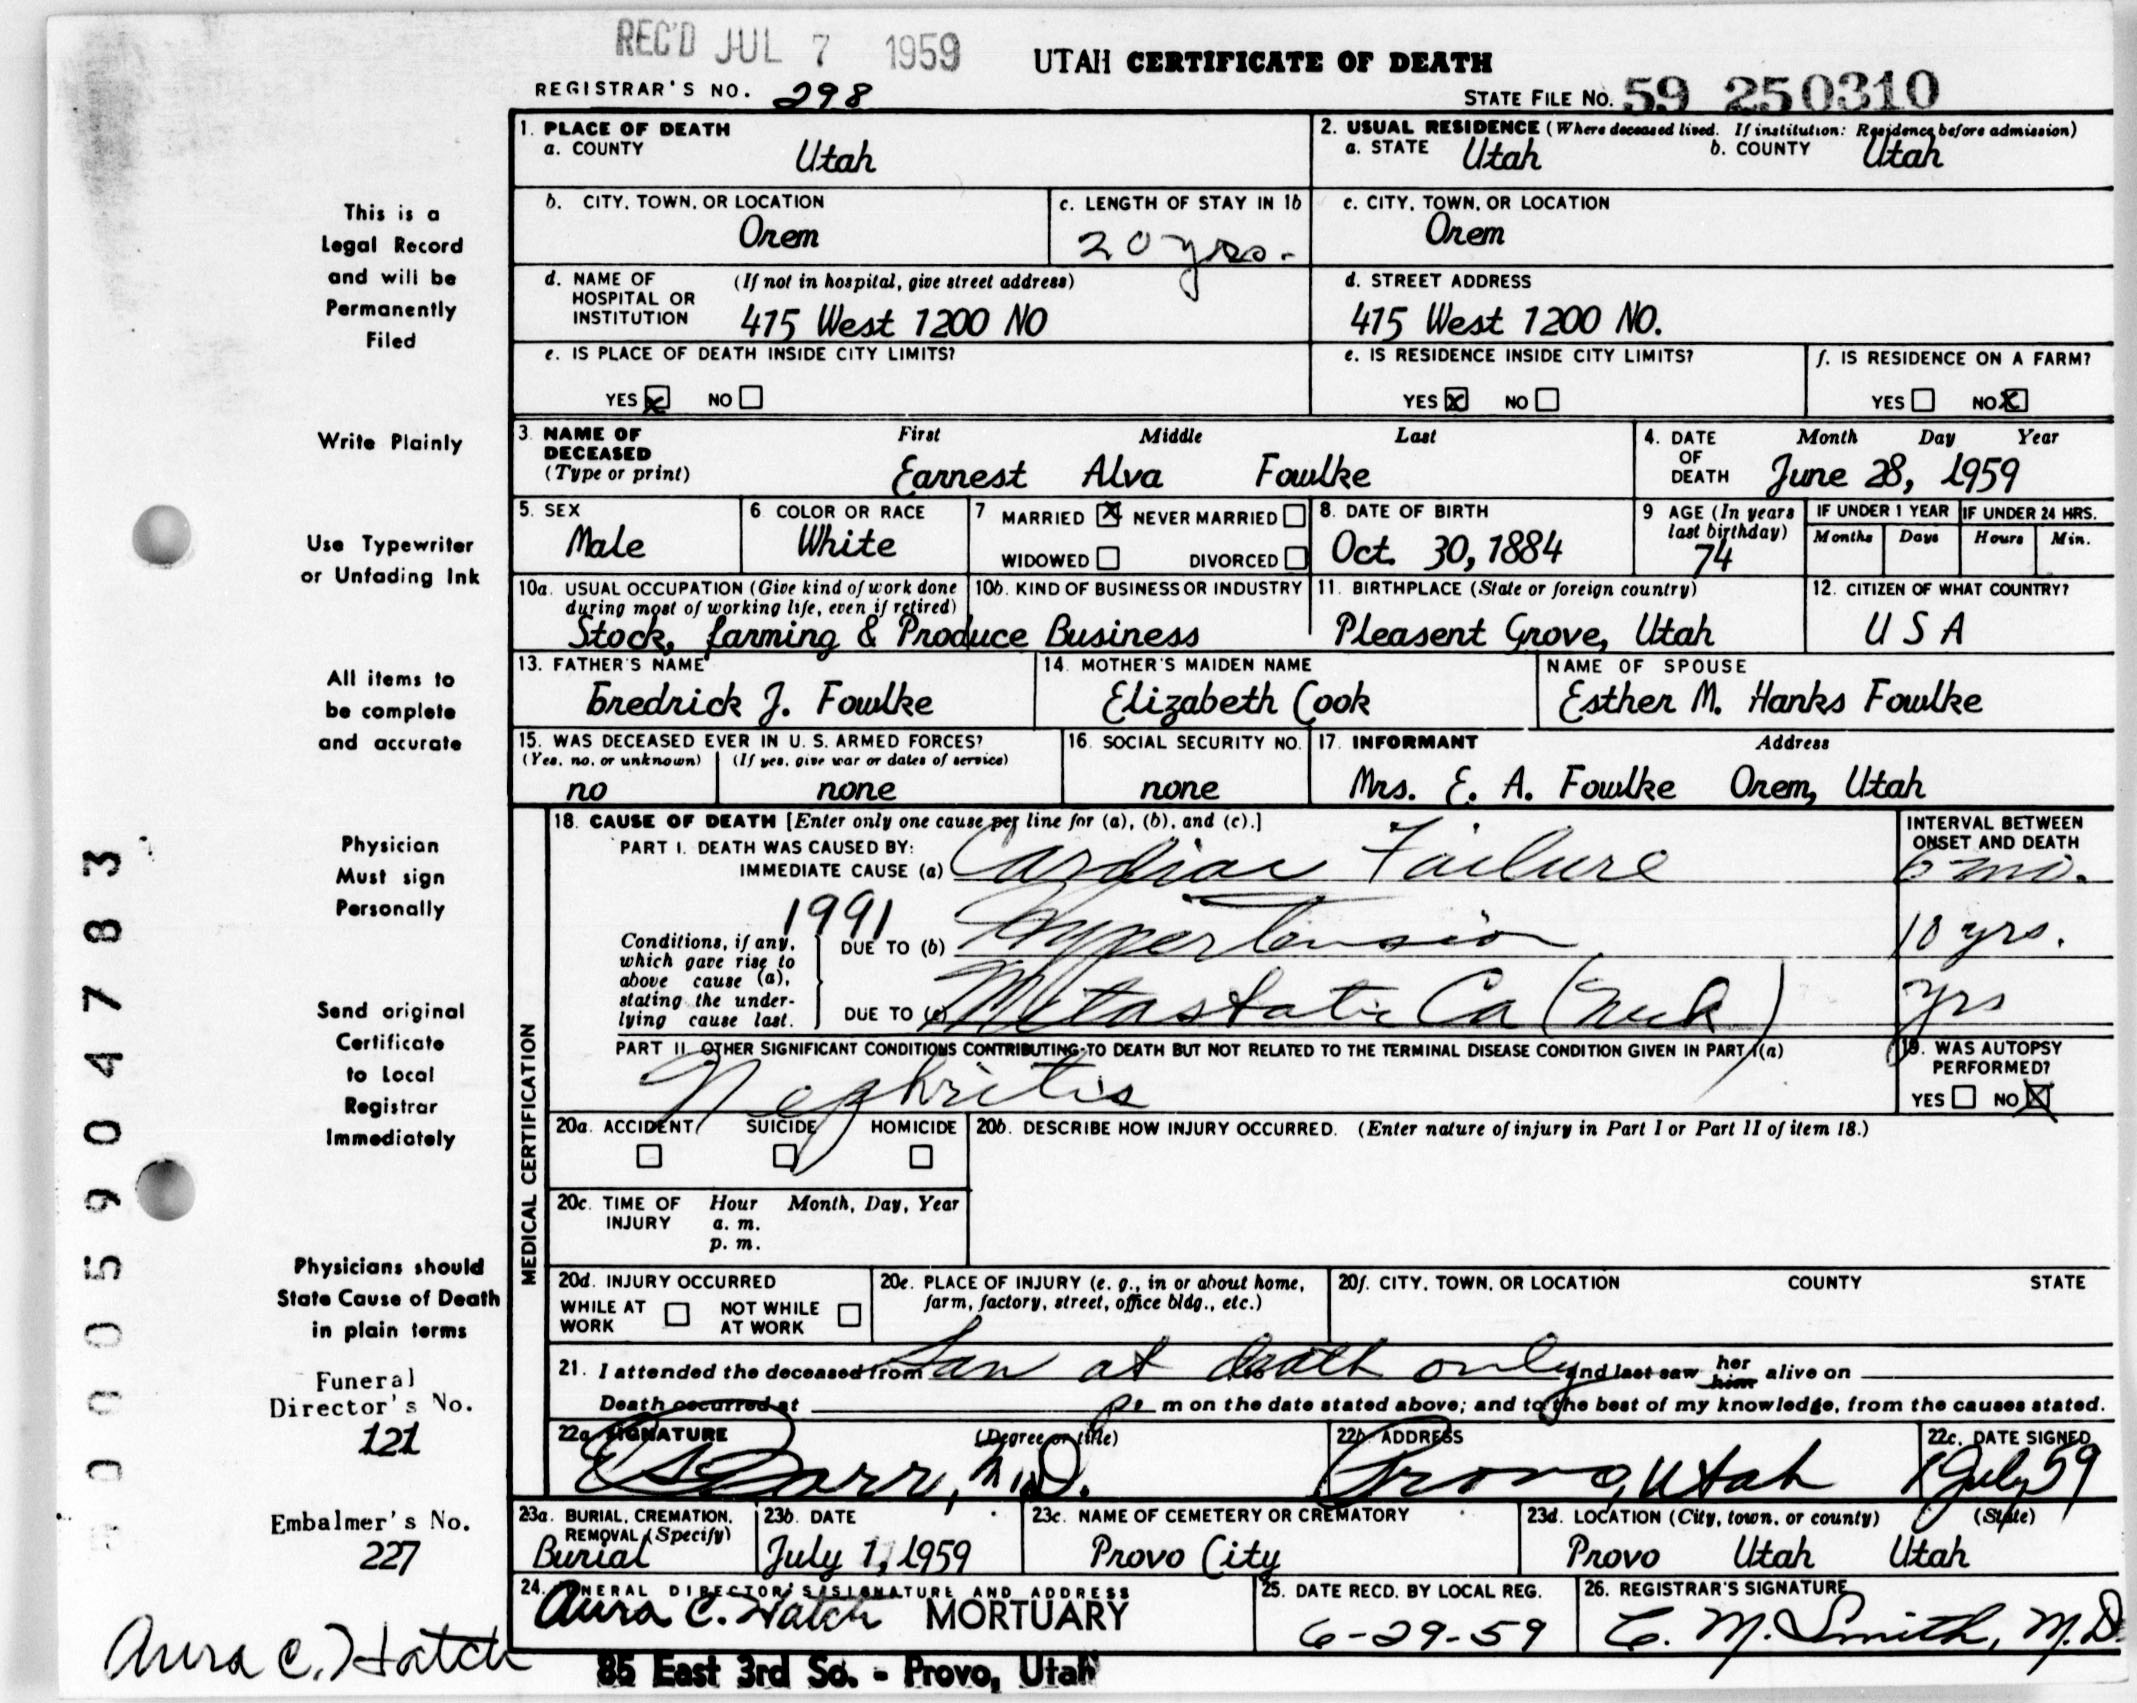 REC'D JUL 7 1959
UTAH CERTIFICATE OF DEATH
REGISTRAR'S NO. 298
STATE FILE NO. 59 250310
1. PLACE OF DEATH
a. COUNTY Utah
2. USUAL RESIDENCE (Where deceased lived. If institution: Residence before admission)
a. STATE Utah b. COUNTY Utah
b. CITY, TOWN, OR LOCATION Orem
c. LENGTH OF STAY IN 1b 20 yrs.
c. CITY, TOWN, OR LOCATION Orem
d. NAME OF HOSPITAL OR INSTITUTION (If not in hospital, give street address)
415 West 1200 NO
d. STREET ADDRESS
415 West 1200 NO.
e. IS PLACE OF DEATH INSIDE CITY LIMITS?
YES x NO
e. IS RESIDENCE INSIDE CITY LIMITS?
YES x NO
f. IS RESIDENCE ON A FARM?
YES NO x
3. NAME OF DECEASED (Type or print) First Middle Last
Earnest Alva Fowlke
4. DATE OF DEATH Month Day Year
June 28, 1959
5. SEX Male
6. COLOR OR RACE White
7 MARRIED X NEVER MARRIED
WIDOWED DIVORCED
8. DATE OF BIRTH Oct. 30, 1884
9 AGE (In years last birthday) 74
IF UNDER 1 YEAR Months Days
IF UNDER 24 HRS. Hours Min.
10a. USUAL OCCUPATION (Give kind of work done during most of working life, even if retired)
10b. KIND OF BUSINESS OR INDUSTRY
Stock, farming & Produce Business
11. BIRTHPLACE (State or foreign country)
Pleasent Grove, Utah
12. CITIZEN OF WHAT COUNTRY?
U S A
13. FATHER'S NAME
Fredrick J. Fowlke
14. MOTHER'S MAIDEN NAME
Elizabeth Cook
NAME OF SPOUSE
Esther M. Hanks Fowlke
15. WAS DECEASED EVER IN U. S. ARMED FORCES?
(Yes, no, or unknown) (If yes, give war or dates of service)
no none
16. SOCIAL SECURITY NO.
none
17. INFORMANT Address
Mrs. E. A. Fowlke Orem, Utah
MEDICAL CERTIFICATION
18. CAUSE OF DEATH [Enter only one cause per line for (a), (b), and (c).]
INTERVAL BETWEEN ONSET AND DEATH
PART I. DEATH WAS CAUSED BY:
IMMEDIATE CAUSE (a) Cardiac Failure 6 mo.
1991
Conditions, if any, which gave rise to above cause (a), stating the underlying cause last.
DUE TO (b) Hypertension 10 yrs.
DUE TO (c) Metastatic Ca (Neck) yrs
PART II OTHER SIGNIFICANT CONDITIONS CONTRIBUTING TO DEATH BUT NOT RELATED TO THE TERMINAL DISEASE CONDITION GIVEN IN PART I(a)
Nephritis
19. WAS AUTOPSY PERFORMED?
YES NO X
20a. ACCIDENT SUICIDE HOMICIDE
20b. DESCRIBE HOW INJURY OCCURRED. (Enter nature of injury in Part I or Part II of item 18.)
20c. TIME OF INJURY Hour Month, Day, Year
a. m.
p. m.
20d. INJURY OCCURRED
WHILE AT WORK NOT WHILE AT WORK
20e. PLACE OF INJURY (e. g., in or about home, farm, factory, street, office bldg., etc.)
20f. CITY, TOWN, OR LOCATION COUNTY STATE
21. I attended the deceased from Saw at death only and last saw her him alive on
Death occurred at p. m on the date stated above; and to the best of my knowledge, from the causes stated.
22a. SIGNATURE (Degree or title)
M.D.
22b. ADDRESS
Provo, Utah
22c. DATE SIGNED
1 July 59
23a. BURIAL, CREMATION, REMOVAL (Specify)
Burial
23b. DATE
July 1, 1959
23c. NAME OF CEMETERY OR CREMATORY
Provo City
23d. LOCATION (City, town, or county) (State)
Provo Utah Utah
24. FUNERAL DIRECTOR'S SIGNATURE AND ADDRESS
Aura C. Hatch MORTUARY
85 East 3rd So. - Provo, Utah
25. DATE RECD. BY LOCAL REG.
6-29-59
26. REGISTRAR'S SIGNATURE
C. M. Smith, M.D.
This is a
Legal Record
and will be
Permanently
Filed
Write Plainly
Use Typewriter
or Unfading Ink
All items to
be complete
and accurate
Physician
Must sign
Personally
Send original
Certificate
to Local
Registrar
Immediately
Physicians should
State Cause of Death
in plain terms
Funeral
Director's No.
121
Embalmer's No.
227
Aura C. Hatch
005904783